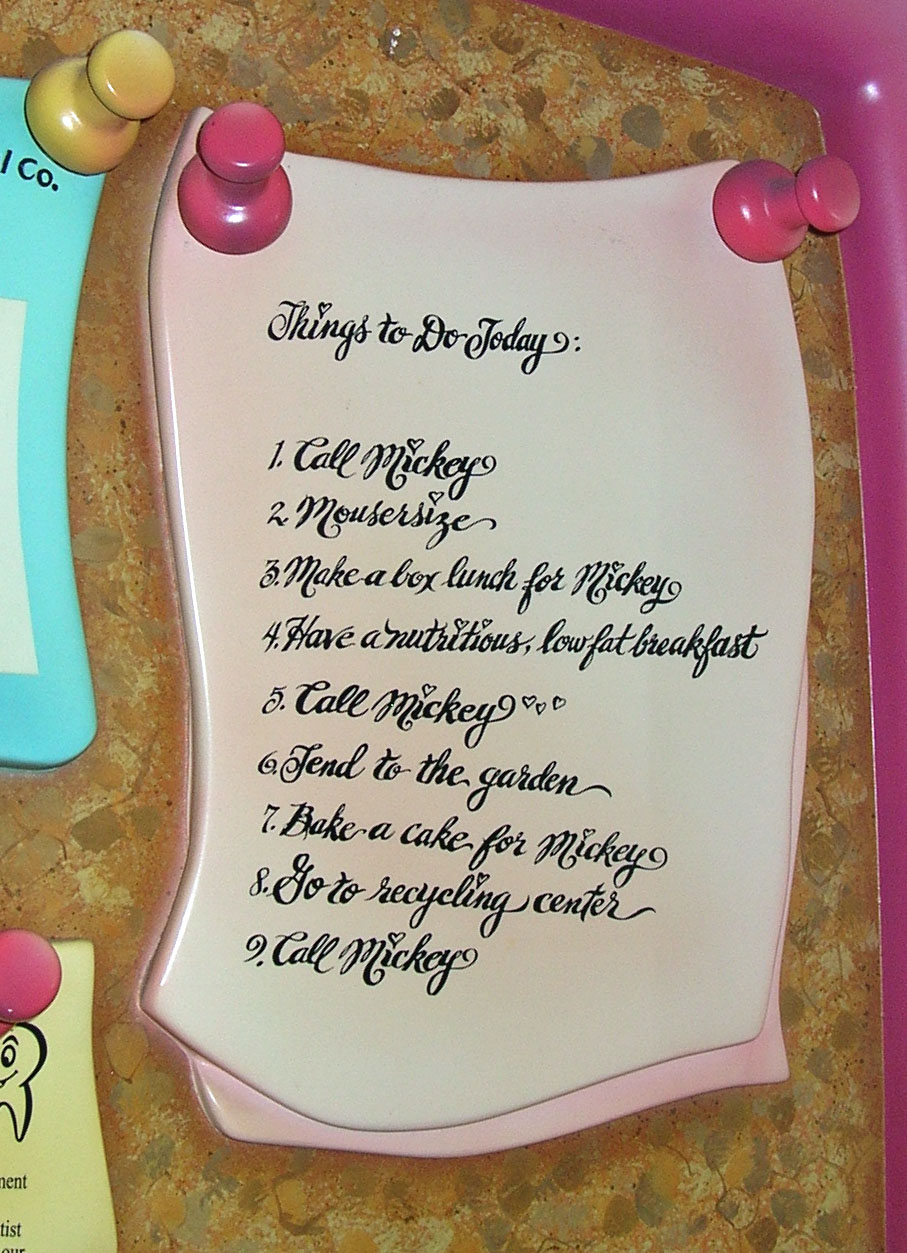 l Co.
Things to Do Today:
1. Call Mickey
2. Mousersize
3. Make a box lunch for Mickey
4. Have a nutritious, lowfat breakfast
5. Call Mickey
6. Tend to the garden
7. Bake a cake for Mickey
8. Go to recycling center
9. Call Mickey